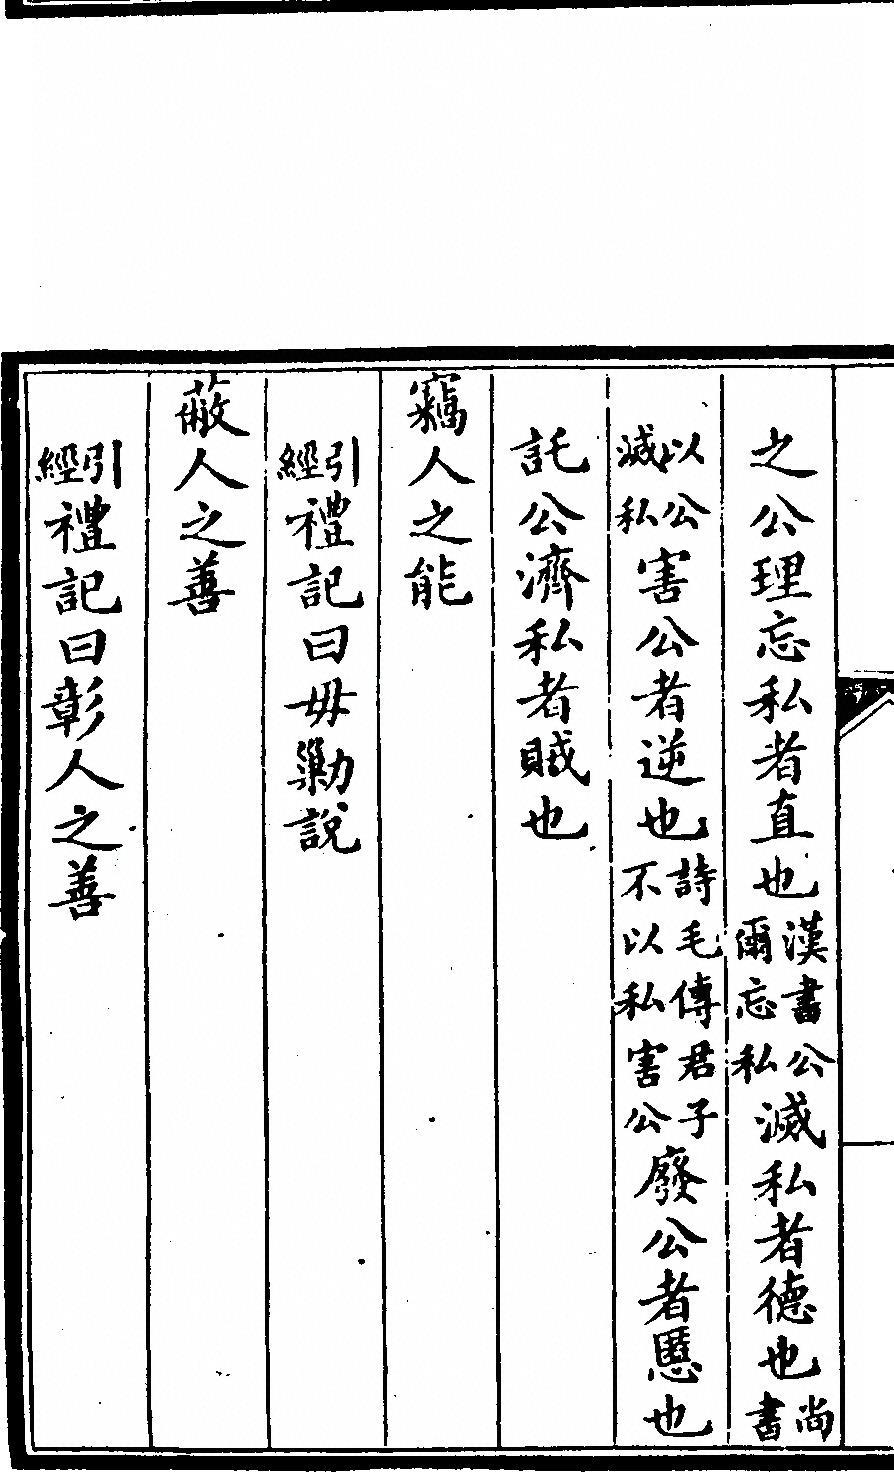 之公理忘私者直也漢書公爾忘私滅私者德也尚書
以公滅私害公者逆也詩毛傳君子不以私害公廢公者慝也
託公濟私者賊也
竊人之能
引經禮記曰毋勦說
蔽人之善
引經禮記曰彰人之善